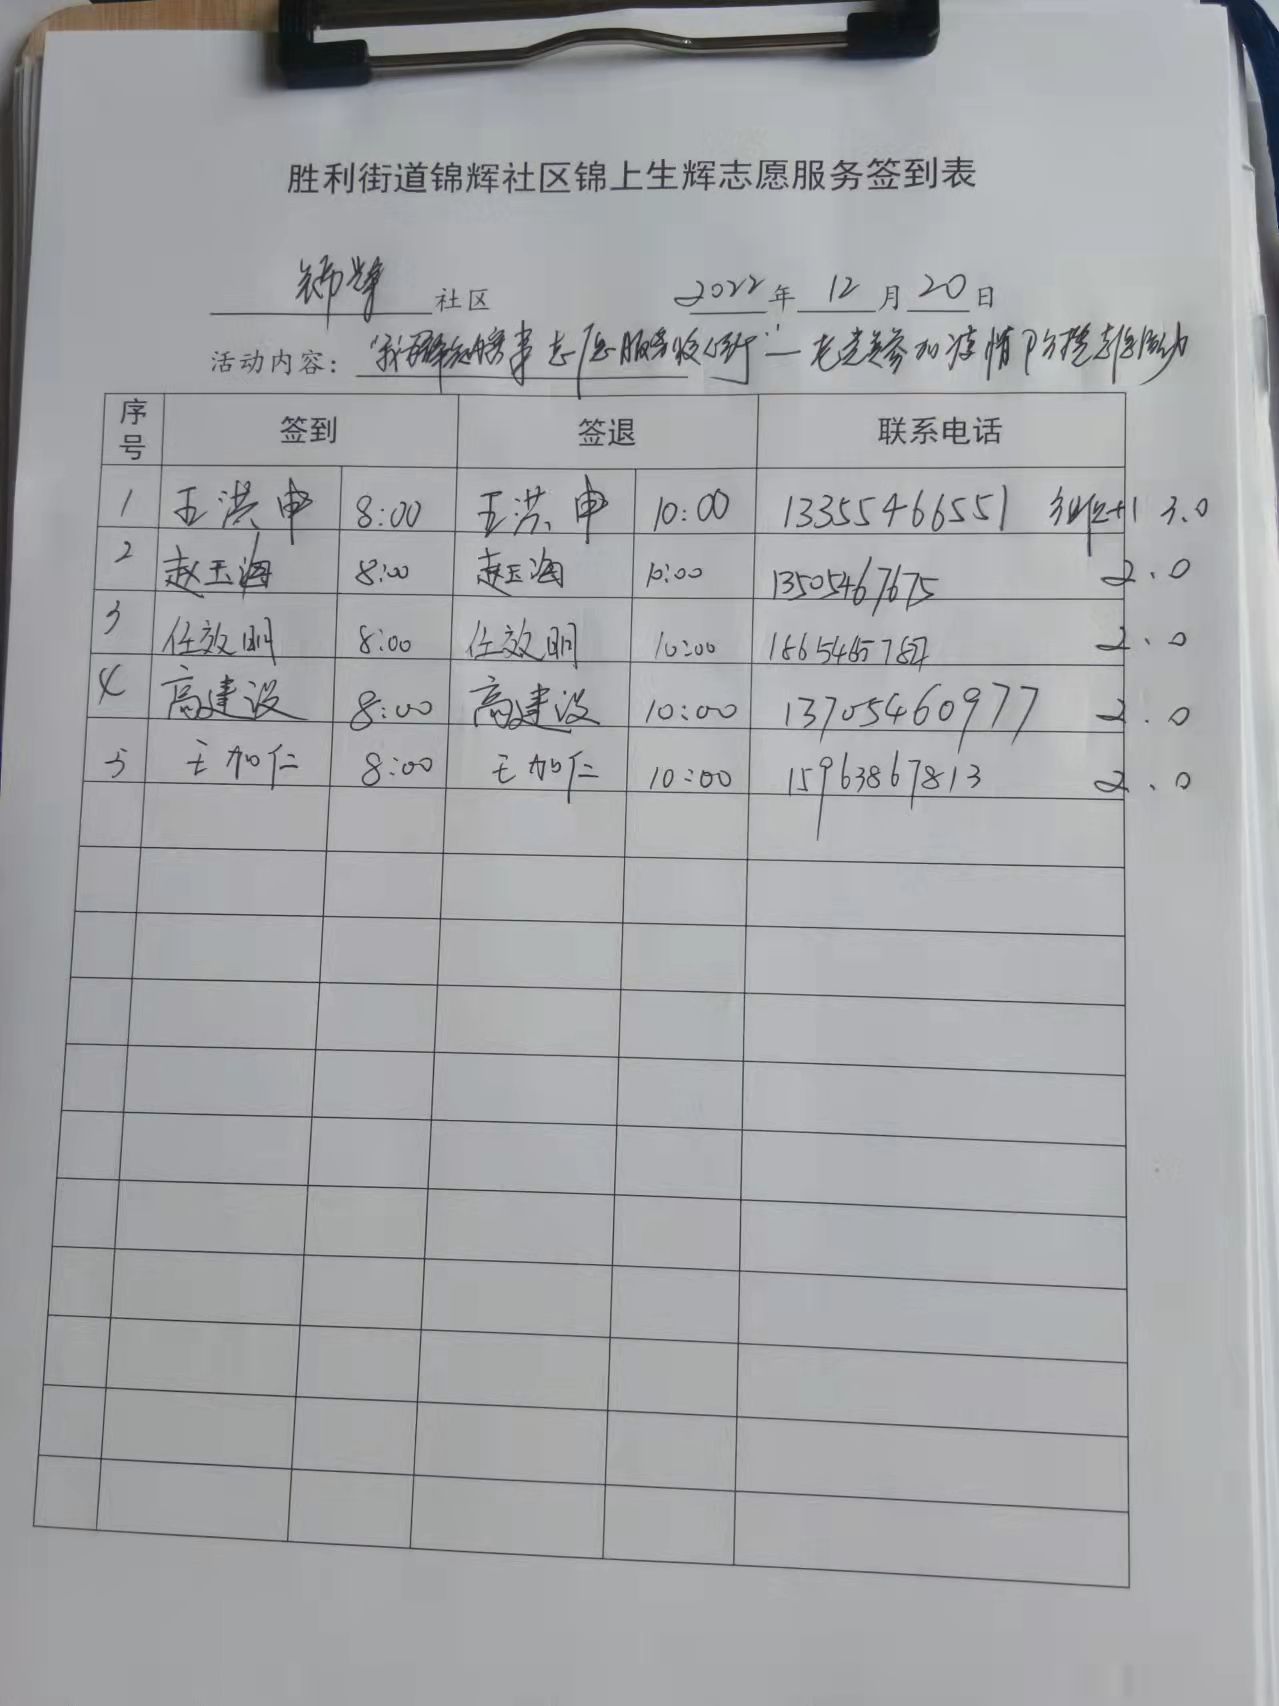 胜利街道锦辉社区锦上生辉志愿服务签到表
锦辉 社区 2022年 12 月 20 日
活动内容: 志愿服务 — 老党员参加疫情防控志愿活动
序号 签到 签退 联系电话
1 王洪申 8:00 王洪申 10:00 13355466551 +1 3.0
2 赵玉海 8:00 赵玉海 10:00 13505467675 2.0
3 任效明 8:00 任效明 10:00 2.0
4 高建设 8:00 高建设 10:00 13705460977 2.0
5 王加仁 8:00 王加仁 10:00 15963867813 2.0